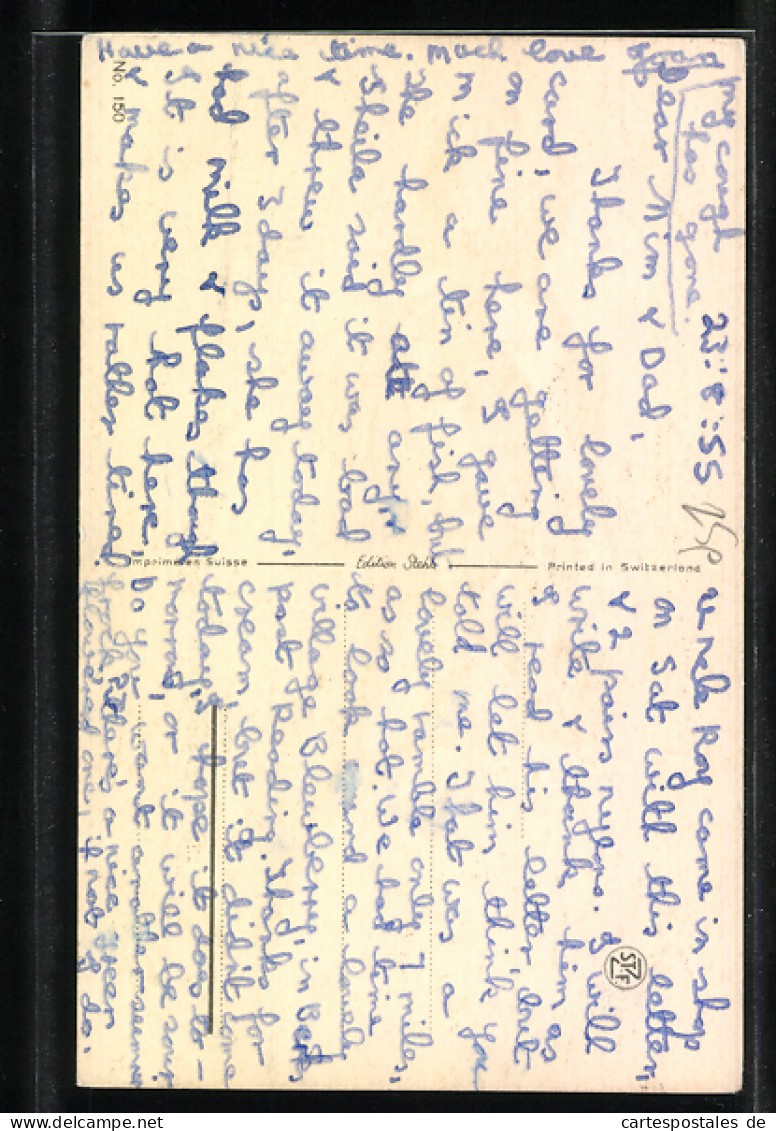 23:8:55
Dear Mim & Dad,
Thanks for lovely
card, we are getting
on fine here, I gave
Mick a tin of fish, but
he hardly ate any,
Sheila said it was bad
& threw it away today,
after 3 days, she has
had milk & flakes though
It is very hot here,
& makes us rather tired
Uncle Roy came in shop
on Sat with this letter,
& 2 pairs nylons. I will
write & thank him as
I read his letter, but
will let him think you
told me. That was a
lovely ramble only 7 miles,
as so hot. We had time
to look round a lovely
village Blewberry, in Berks,
past Reading. Thanks for
cream, but it didn't come
today, I hope it does to-
morrow, or it will be sour
Do you want another summer
frock, there's a nice green
flowered one, if not I do.
Have a nice time. Much love
my cough
has gone.
No. 150
Imprimé en Suisse
Edition Stehli
Printed in Switzerland
STZF
cartespostales de